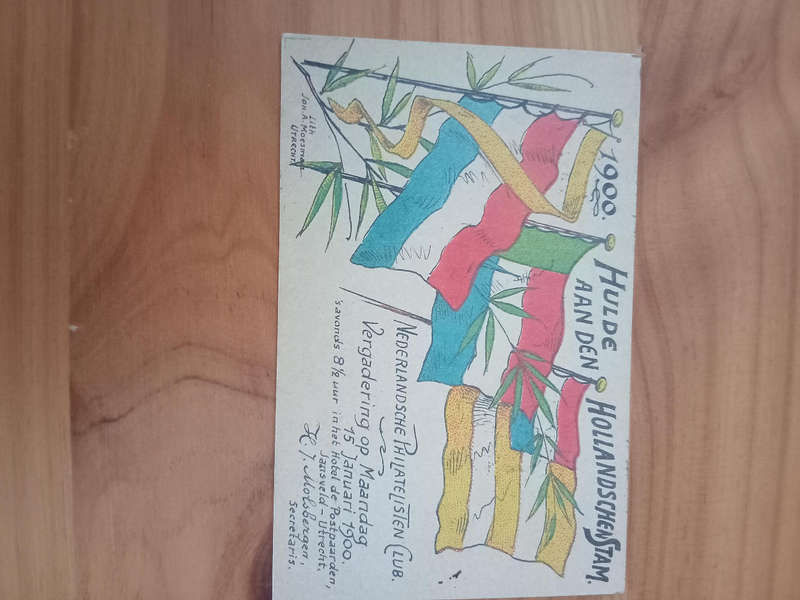 1900. HULDE
AAN DEN HOLLANDSCHEN STAM.
Lith
Joh. A. Moesman
UTRECHT
NEDERLANDSCHE PHILATELISTEN CLUB.
Vergadering op Maandag
15 Januari 1900.
'savonds 8 1/2 uur in het Hotel de Postpaarden,
Jansveld - Utrecht.
H. J. Molsbergen,
Secretaris.